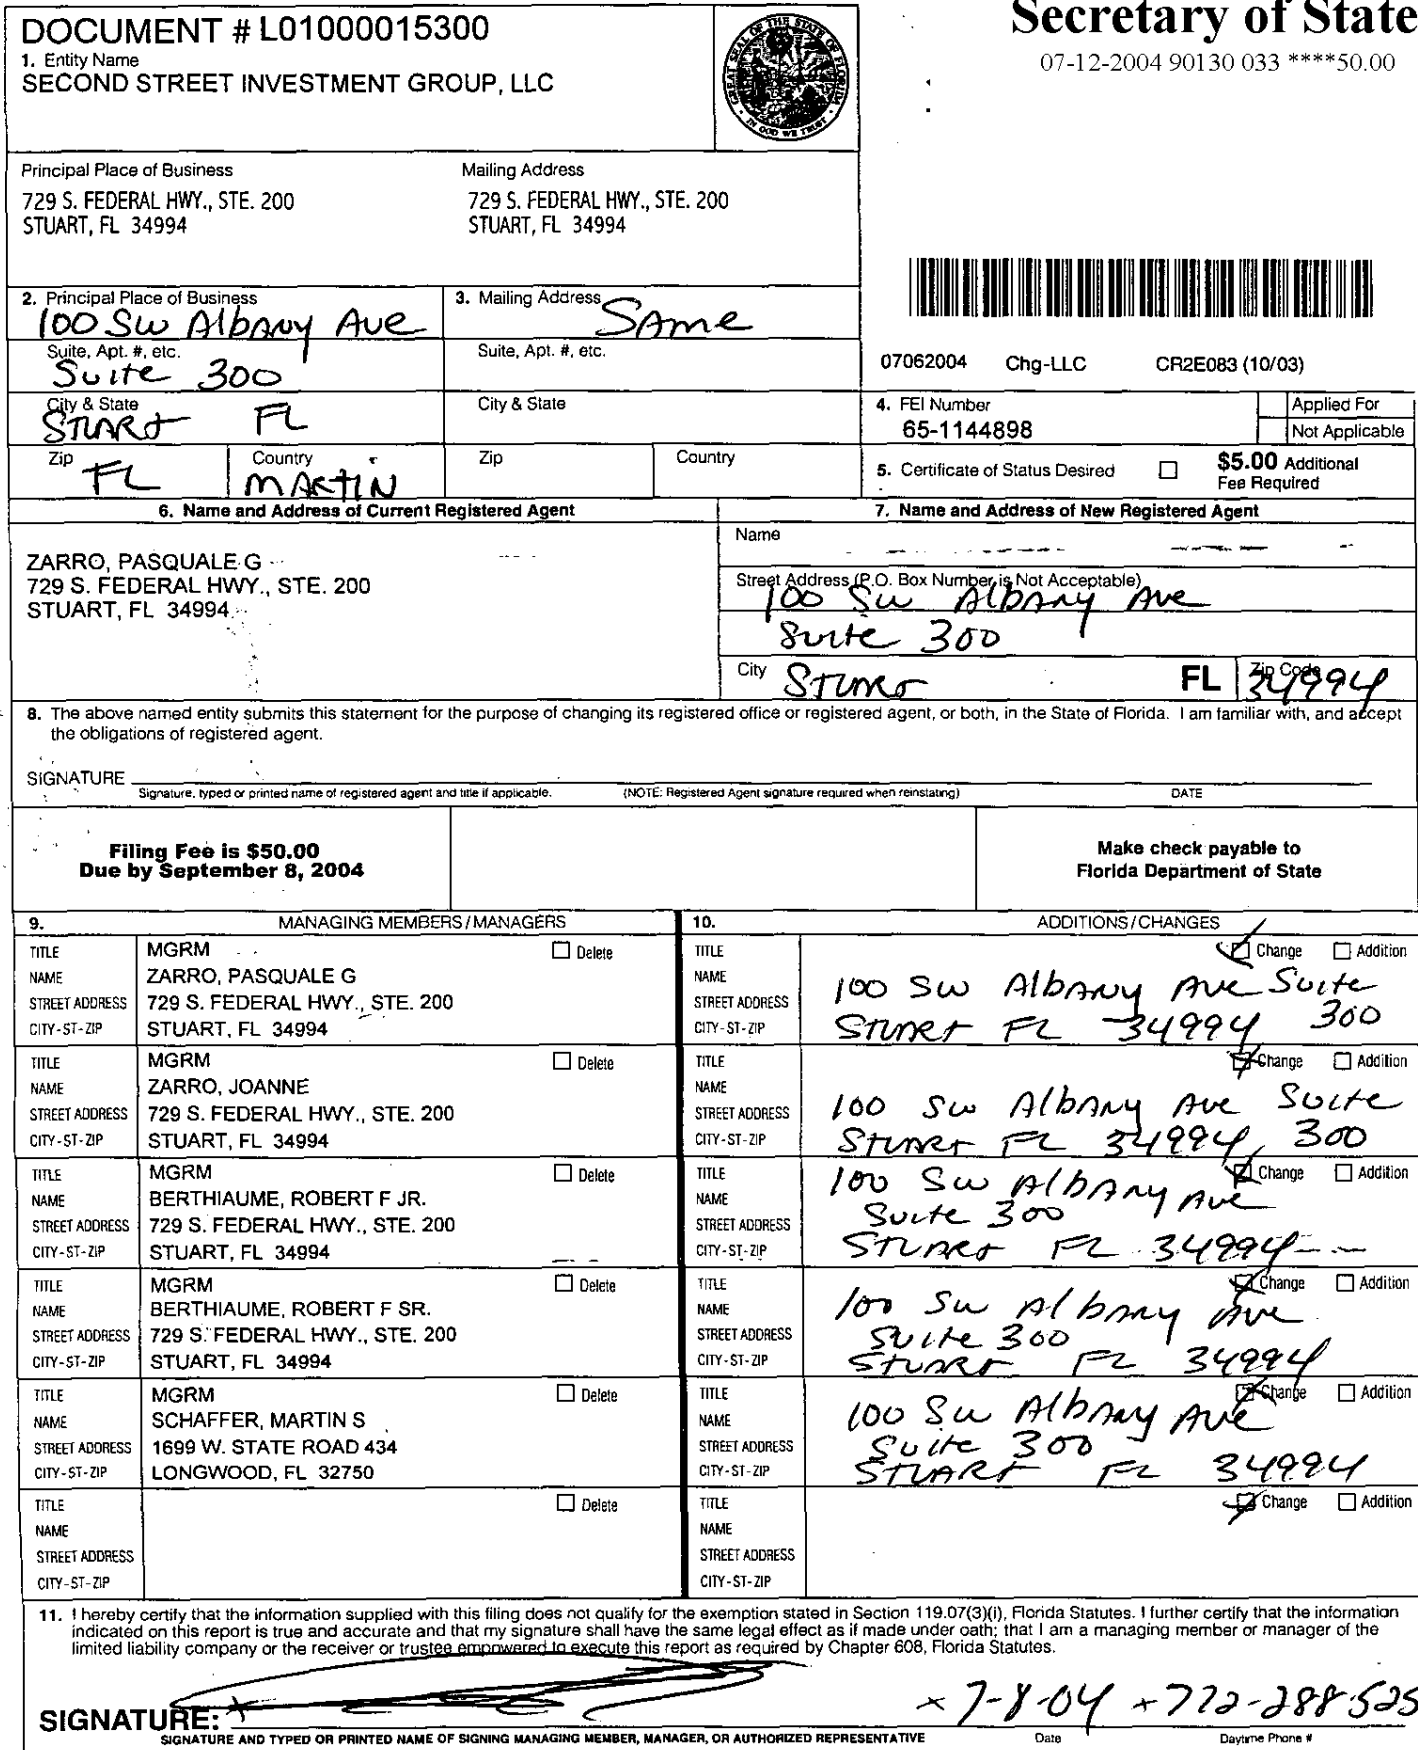 Secretary of State
07-12-2004 90130 033 ****50.00
DOCUMENT # L01000015300
1. Entity Name
SECOND STREET INVESTMENT GROUP, LLC
GREAT SEAL OF THE STATE OF FLORIDA
IN GOD WE TRUST
Principal Place of Business
729 S. FEDERAL HWY., STE. 200
STUART, FL 34994
Mailing Address
729 S. FEDERAL HWY., STE. 200
STUART, FL 34994
2. Principal Place of Business
100 SW Albany Ave
3. Mailing Address
SAme
Suite, Apt. #, etc.
Suite 300
Suite, Apt. #, etc.
City & State
STUART FL
City & State
Zip
FL
Country
MARTIN
Zip
Country
07062004 Chg-LLC CR2E083 (10/03)
4. FEI Number
65-1144898
Applied For
Not Applicable
5. Certificate of Status Desired
$5.00 Additional
Fee Required
6. Name and Address of Current Registered Agent
ZARRO, PASQUALE G
729 S. FEDERAL HWY., STE. 200
STUART, FL 34994
7. Name and Address of New Registered Agent
Name
Street Address (P.O. Box Number is Not Acceptable)
100 SW Albany Ave
Suite 300
City STUART FL Zip Code 34994
8. The above named entity submits this statement for the purpose of changing its registered office or registered agent, or both, in the State of Florida. I am familiar with, and accept
the obligations of registered agent.
SIGNATURE
Signature, typed or printed name of registered agent and title if applicable. (NOTE: Registered Agent signature required when reinstating) DATE
Filing Fee is $50.00
Due by September 8, 2004
Make check payable to
Florida Department of State
9. MANAGING MEMBERS/MANAGERS
10. ADDITIONS/CHANGES
TITLE MGRM Delete
NAME ZARRO, PASQUALE G
STREET ADDRESS 729 S. FEDERAL HWY., STE. 200
CITY-ST-ZIP STUART, FL 34994
TITLE Change Addition
NAME
STREET ADDRESS 100 SW Albany Ave Suite 300
CITY-ST-ZIP Stuart FL 34994
TITLE MGRM Delete
NAME ZARRO, JOANNE
STREET ADDRESS 729 S. FEDERAL HWY., STE. 200
CITY-ST-ZIP STUART, FL 34994
TITLE Change Addition
NAME
STREET ADDRESS 100 SW Albany Ave Suite 300
CITY-ST-ZIP Stuart FL 34994
TITLE MGRM Delete
NAME BERTHIAUME, ROBERT F JR.
STREET ADDRESS 729 S. FEDERAL HWY., STE. 200
CITY-ST-ZIP STUART, FL 34994
TITLE Change Addition
NAME 100 SW Albany Ave
STREET ADDRESS Suite 300
CITY-ST-ZIP Stuart FL 34994
TITLE MGRM Delete
NAME BERTHIAUME, ROBERT F SR.
STREET ADDRESS 729 S. FEDERAL HWY., STE. 200
CITY-ST-ZIP STUART, FL 34994
TITLE Change Addition
NAME 100 SW Albany Ave
STREET ADDRESS Suite 300
CITY-ST-ZIP Stuart FL 34994
TITLE MGRM Delete
NAME SCHAFFER, MARTIN S
STREET ADDRESS 1699 W. STATE ROAD 434
CITY-ST-ZIP LONGWOOD, FL 32750
TITLE Change Addition
NAME 100 SW Albany Ave
STREET ADDRESS Suite 300
CITY-ST-ZIP STUART FL 34994
TITLE Delete
NAME
STREET ADDRESS
CITY-ST-ZIP
TITLE Change Addition
NAME
STREET ADDRESS
CITY-ST-ZIP
11. I hereby certify that the information supplied with this filing does not qualify for the exemption stated in Section 119.07(3)(i), Florida Statutes. I further certify that the information
indicated on this report is true and accurate and that my signature shall have the same legal effect as if made under oath; that I am a managing member or manager of the
limited liability company or the receiver or trustee empowered to execute this report as required by Chapter 608, Florida Statutes.
SIGNATURE: x x 7-8-04 x 772-288-525
SIGNATURE AND TYPED OR PRINTED NAME OF SIGNING MANAGING MEMBER, MANAGER, OR AUTHORIZED REPRESENTATIVE Date Daytime Phone #